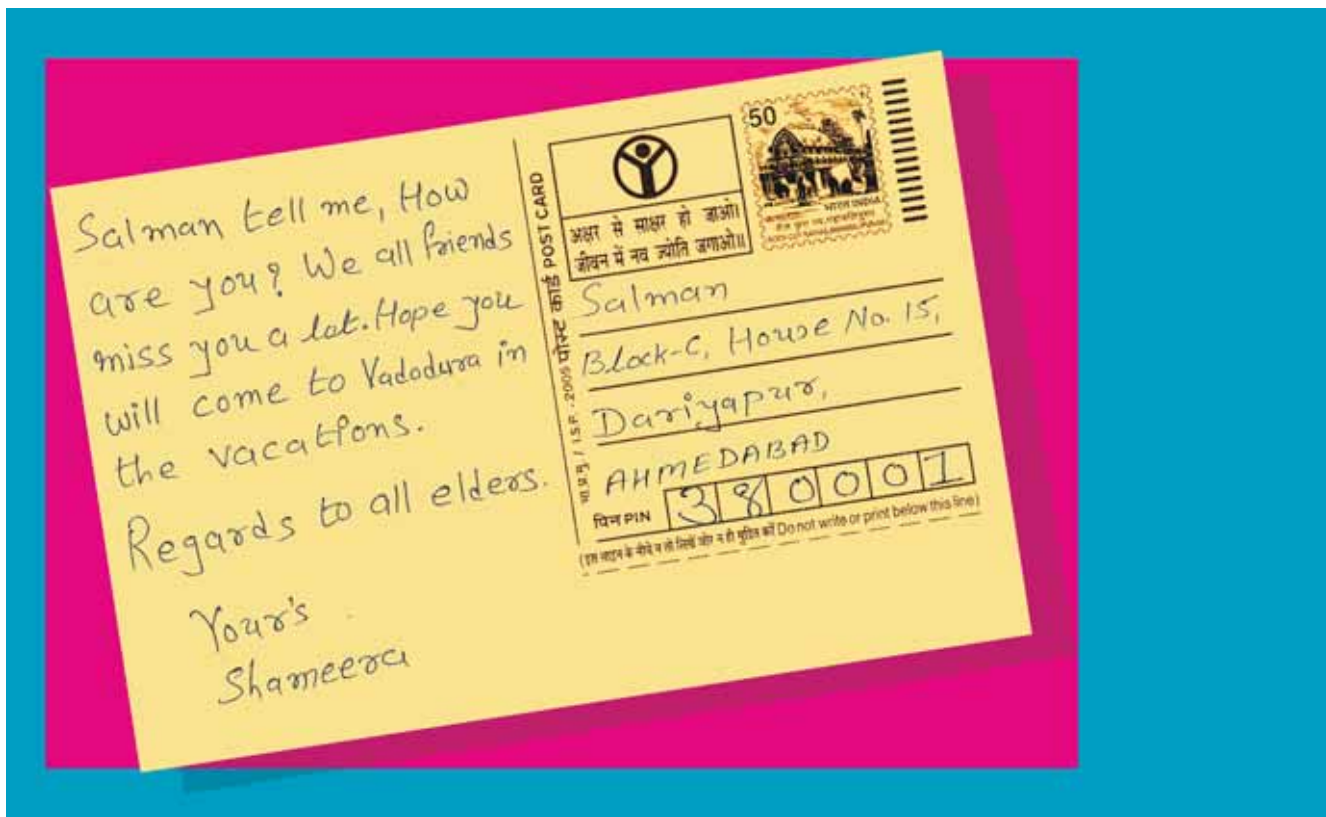 Salman tell me, How
are you? We all friends
miss you a lot. Hope you
will come to Vadodura in
the vacations.
Regards to all elders.
Your's
Shameera
पोस्ट कार्ड POST CARD
/ I.S.P. -2005
अक्षर से साक्षर हो जाओ।
जीवन में नव ज्योति जगाओ॥
50
भारत INDIA
Salman
Block-C, House No. 15,
Dariyapur,
AHMEDABAD
पिन PIN 380001
(इस लाइन के नीचे न तो लिखें और न ही मुद्रित करें Do not write or print below this line)